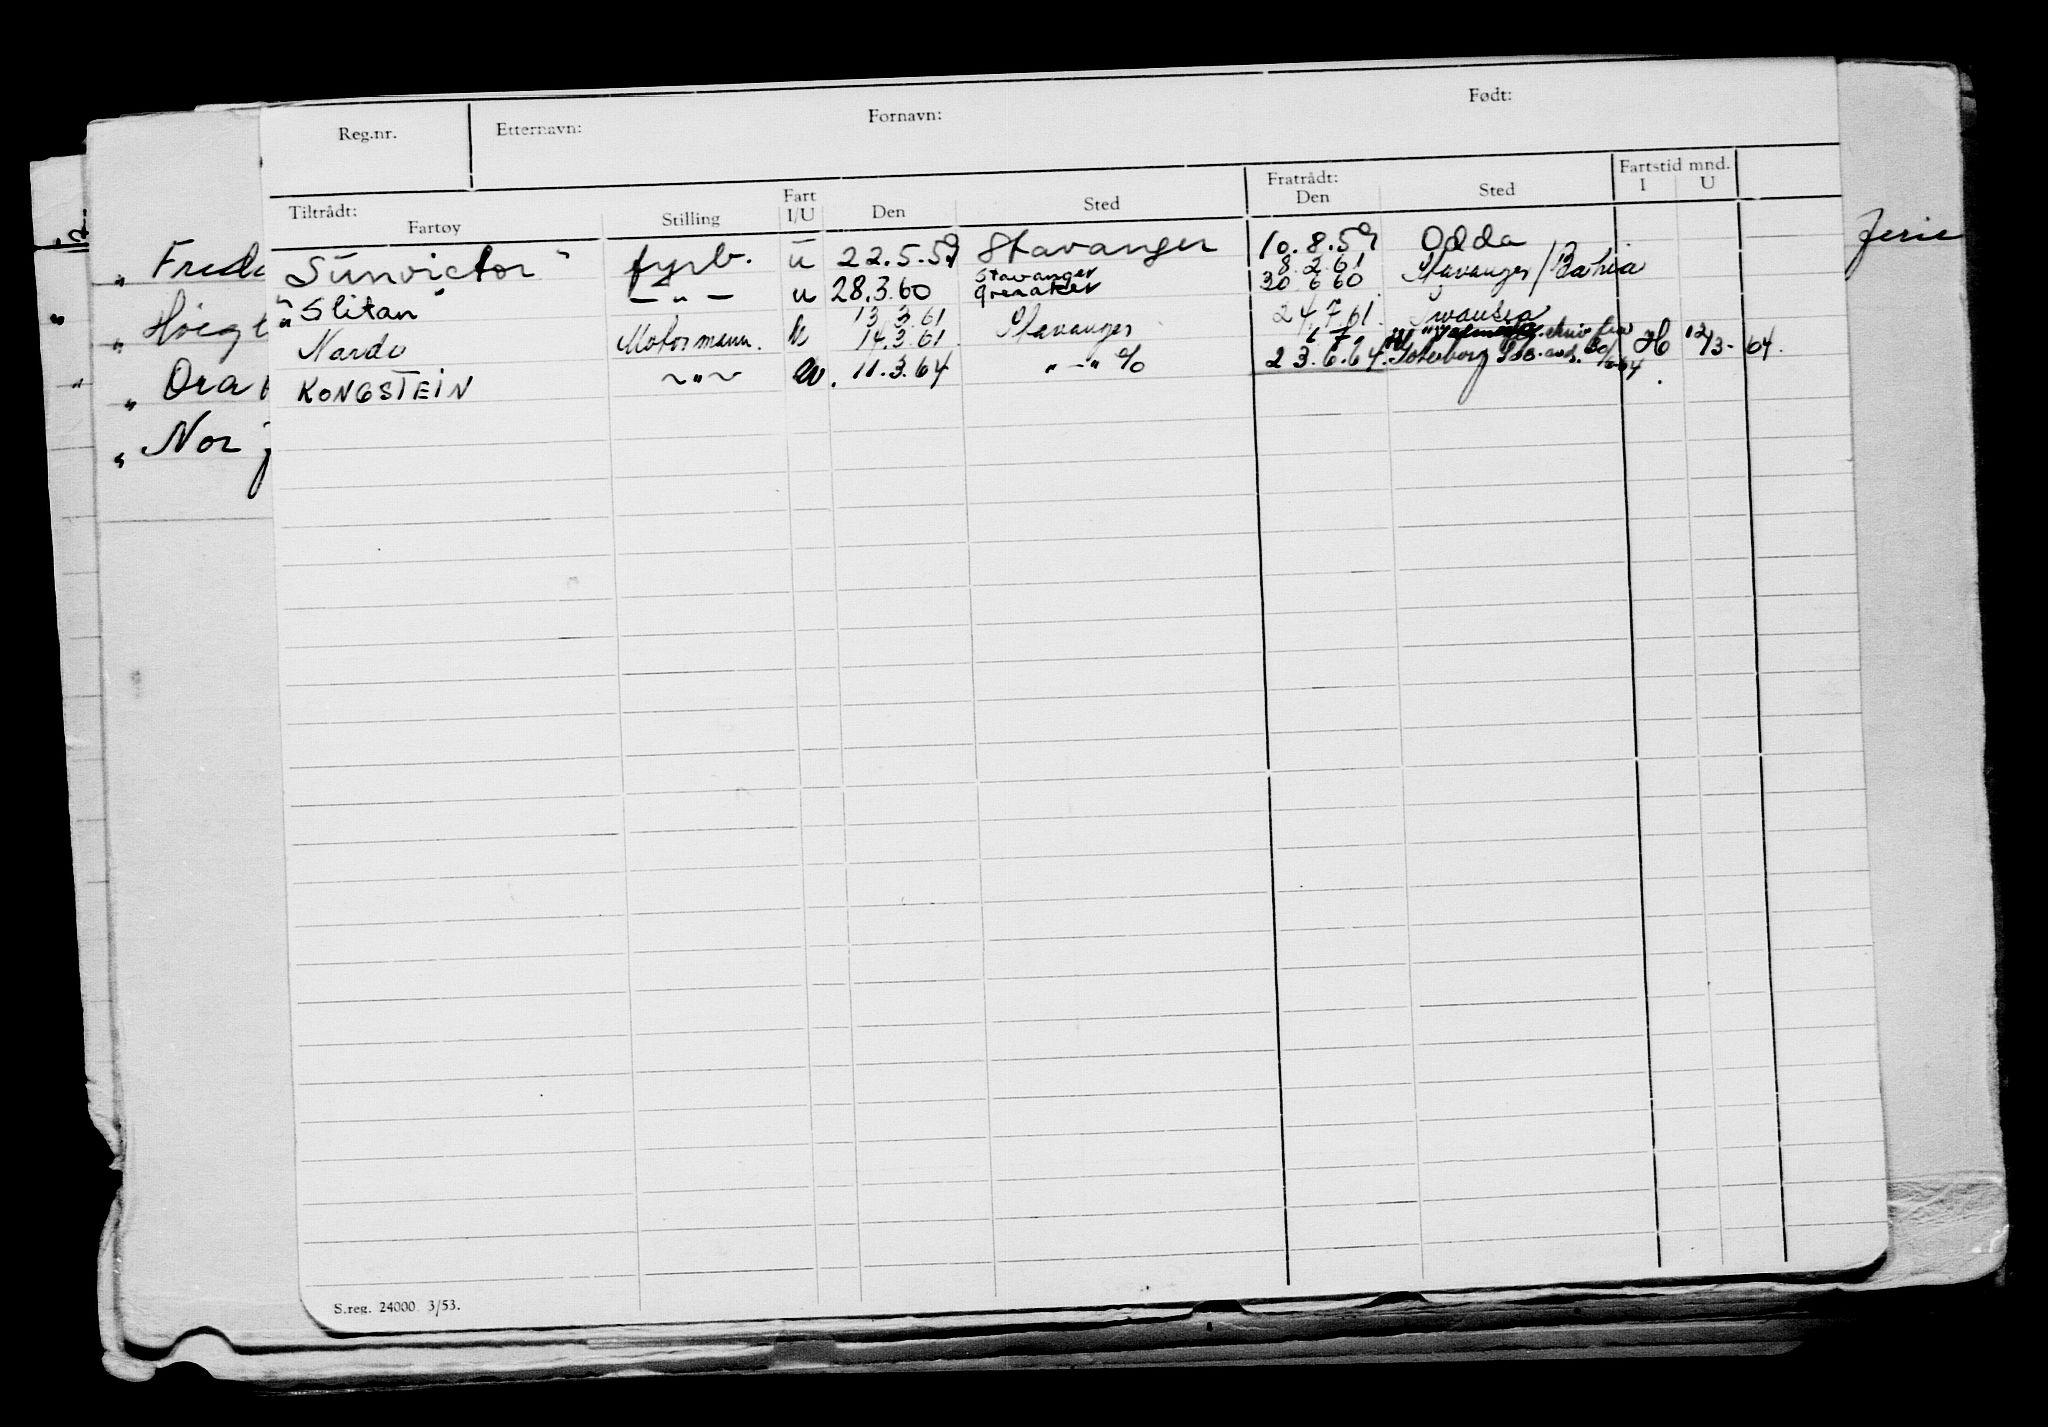 Reg.nr. Etternavn: Fornavn: Født:
Tiltrådt: Fratrådt: Fartstid mnd.
Fartøy Stilling Fart I/U Den Sted Den Sted I U
Sunvictor fyrb. u 22.5.59 Stavanger 10.8.59 Odda
"Slitan" — " — u 28.3.60 Stavanger 30 6 60 8.2.61 Stavanger / Bahia
Nardo Motormann. u 13.3.61 14.3.61 Stavanger 24.7.61 Swansea
KONGSTEIN ~"~ u. 11.3.64 " - " 23.6.64. Göteborg H 12/3- 64.
" Fred
" Höegh
" Ora
" Nor
Ferie
S.reg. 24000 3/53.